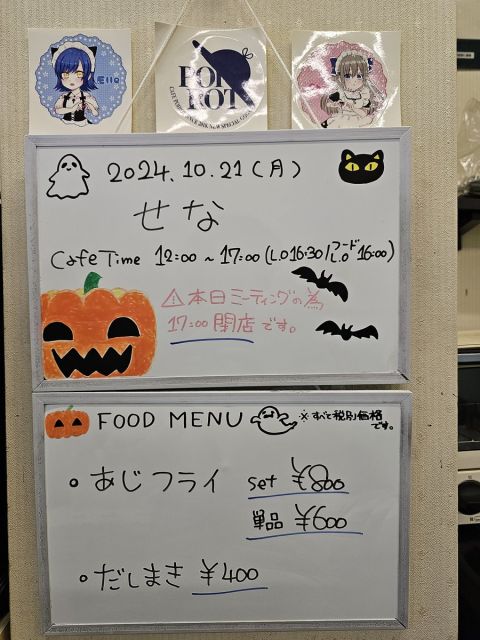 Ello
POR
POT
2024.10.21(月)
せな
Cafe Time 12:00 ~ 17:00 (L.O 16:30 / フード L.O 16:00)
⚠本日ミーティングの為
17:00 閉店です。
FOOD MENU
※すべて税別価格
です。
・あじフライ set ¥800
単品 ¥600
・だしまき ¥400